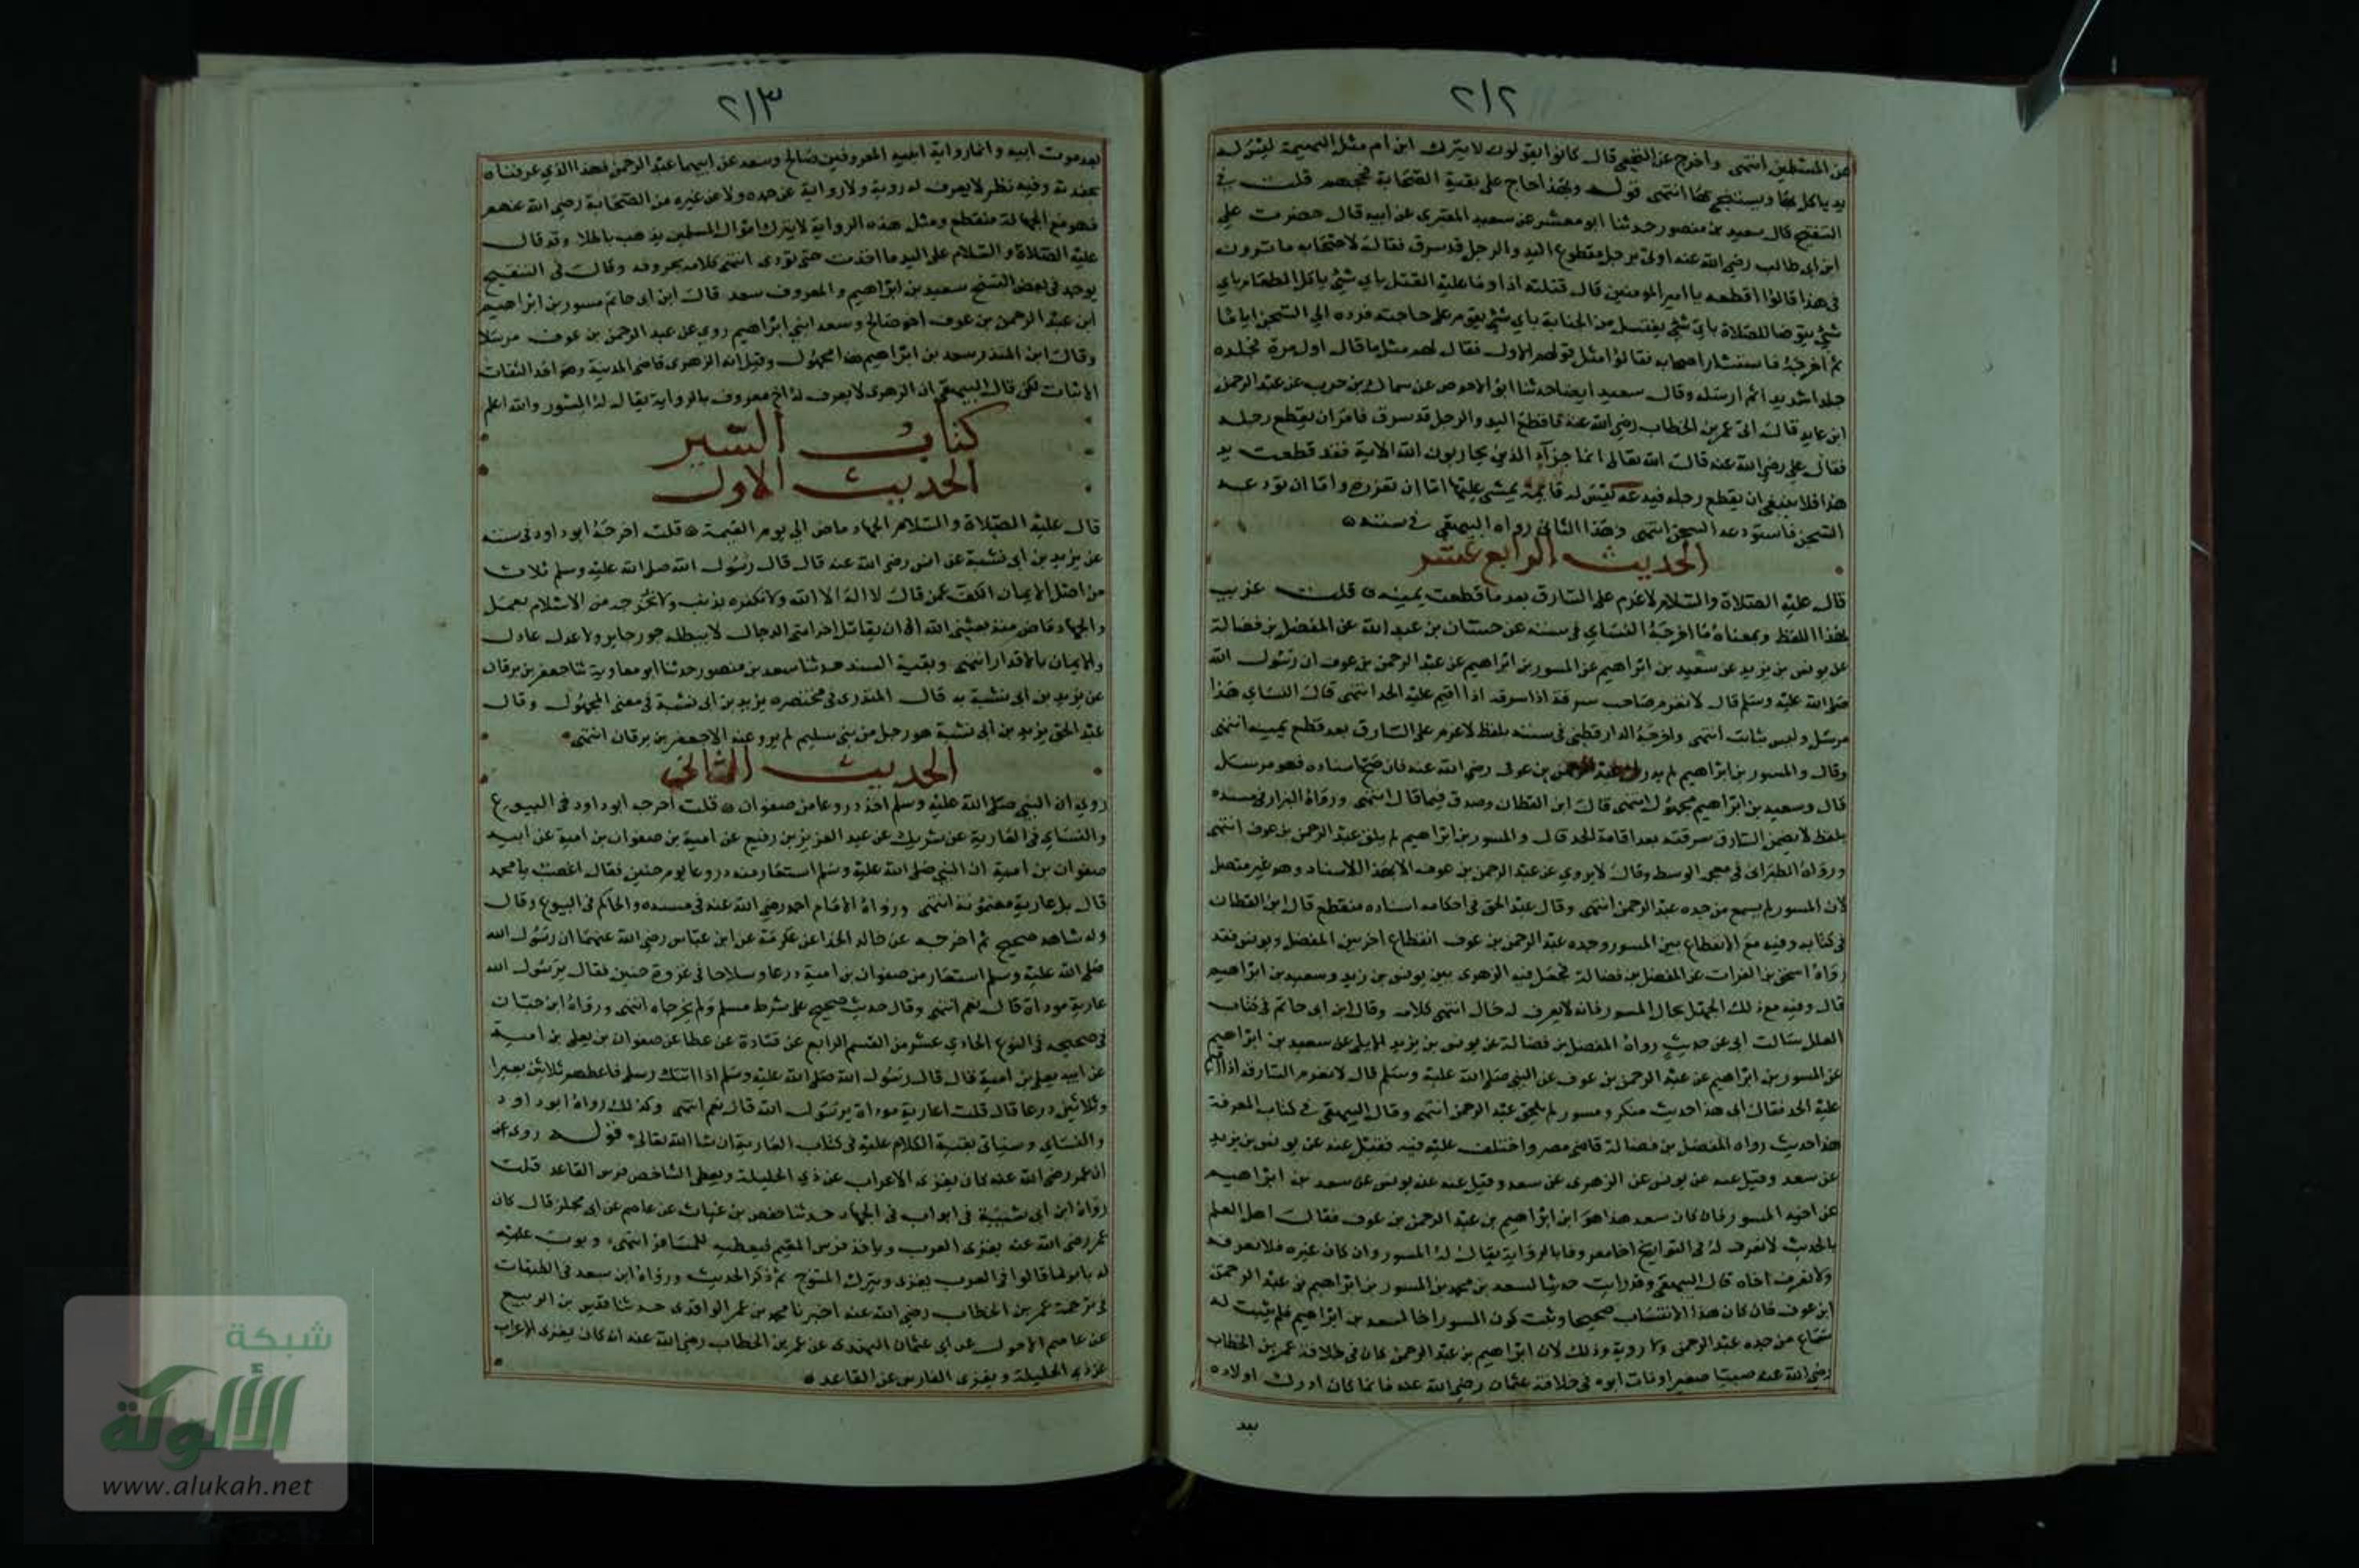 ٢١٢
من المسلمين انتهى واخرج عن النخعي قال كانوا يقولون لا يترك ابن ادم مثل البهيمة ليس له
يد ياكل بها ويستنجي بها انتهى قوله وبهذا حاج علي بقية الصحابة فحجهم قلت في
التنقيح قال سعيد بن منصور حدثنا ابو معشر عن سعيد المقبري عن ابيه قال حضرت علي
ابن ابي طالب رضي الله عنه اوتي برجل مقطوع اليد والرجل قد سرق فقال لاصحابه ما ترون
في هذا قالوا اقطعه يا امير المومنين قال قتلته اذا وما عليه القتل باي شي ياكل الطعام باي
شي يتوضا للصلاة باي شي يغتسل من الجنابة باي شي يقوم على حاجته فرده الي السجن اياما
ثم اخرجه فاستشار اصحابه فقالوا مثل قولهم الاول فقال لهم مثل ما قال اول مرة فجلده
جلدا شديدا ثم ارسله وقال سعيد ايضا حدثنا ابو الاحوص عن سماك بن حرب عن عبد الرحمن
ابن عايد قال اتى عمر بن الخطاب رضي الله عنه باقطع اليد والرجل قد سرق فامر ان يقطع رجله
فقال علي رضي الله عنه قال الله تعالى انما جزآء الذين يحاربون الله الاية فقد قطعت يد
هذا فلا ينبغي ان يقطع رجله فيدعه ليس له قايمة يمشي عليها اما ان تعزره واما ان تودعه
السجن فاستودعه السجن انتهى وهذا الثاني رواه البيهقي في سننه
الحديث الرابع عشر
قال عليه الصلاة والسلام لا غرم على السارق بعد ما قطعت يمينه قلت غريب
بهذا اللفظ وبمعناه ما اخرجه النساي في سننه عن حسان بن عبد الله عن المفضل بن فضالة
عن يونس بن يزيد عن سعيد بن ابراهيم عن المسور بن ابراهيم عن عبد الرحمن بن عوف ان رسول الله
صلى الله عليه وسلم قال لا يغرم صاحب سرقة اذا سرقه اذا اقيم عليه الحد انتهى قال النساي هذا
مرسل وليس بثابت انتهى واخرجه الدارقطني في سننه بلفظ لا غرم على السارق بعد قطع يمينه انتهى
وقال والمسور بن ابراهيم لم يدرك عبد الرحمن بن عوف رضي الله عنه فان صح اسناده فهو مرسل
قال وسعيد بن ابراهيم مجهول انتهى قال ابن القطان وصدق فيما قال انتهى ورواه البزار في مسنده
بلفظ لا يضمن السارق سرقته بعد اقامة الحد قال والمسور بن ابراهيم لم يلق عبد الرحمن بن عوف انتهى
ورواه الطبراني في معجمه الوسط وقال لا يروي عن عبد الرحمن بن عوف الا بهذا الاسناد وهو غير متصل
لان المسور لم يسمع من جده عبد الرحمن انتهى وقال عبد الحق في احكامه اسناده منقطع قال ابن القطان
في كتابه وفيه مع الانقطاع بين المسور وجده عبد الرحمن بن عوف انقطاع اخر بين المفضل ويونس فقد
رواه اسحق بن الفرات عن المفضل بن فضالة فجعل فيه الزهري بين يونس بن زيد وسعيد بن ابراهيم
قال وفيه مع ذلك الجهل بحال المسور فانه لا يعرف له حال انتهى كلامه وقال ابن ابي حاتم في كتاب
العلل سالت ابي عن حديث رواه المفضل بن فضالة عن يونس بن يزيد الايلي عن سعيد بن ابراهيم
عن المسور بن ابراهيم عن عبد الرحمن بن عوف عن النبي صلى الله عليه وسلم قال لا يغرم السارق اذا اقيم
عليه الحد فقال ابي هذا حديث منكر ومسور لم يلحق عبد الرحمن انتهى وقال البيهقي في كتاب المعرفة
هذا حديث رواه المفضل بن فضالة قاضي مصر واختلف عليه فيه فقيل عنه عن يونس بن يزيد
عن سعد وقيل عنه عن يونس عن الزهري عن سعد وقيل عنه عن يونس عن سعد بن ابراهيم
عن اخيه المسور فان كان سعد هذا هو ابن ابراهيم بن عبد الرحمن بن عوف فقال اهل العلم
بالحديث لا نعرف له في التواريخ اخا معروفا بالرواية يقال له المسور وان كان غيره فلا نعرفه
ولا نعرف اخاه قال البيهقي وقد رايت حديثا لسعد بن محمد بن المسور بن ابراهيم بن عبد الرحمن
ابن عوف فان كان هذا الانتساب صحيحا وثبت كون المسور اخا لسعد بن ابراهيم فلم يثبت له
سماع من جده عبد الرحمن ولا روية وذلك لان ابراهيم بن عبد الرحمن كان في خلافة عمر بن الخطاب
رضي الله عنه صبيا صغيرا ومات ابوه في خلافة عثمان رضي الله عنه فانما كان ادرك اولاده
بعد
٢١٣
بعد موت ابيه وانما رواية ابنيه المعروفين صالح وسعد عن ابيهما عبد الرحمن فهذا الذي عرفناه
وفيه نظر لا يعرف له روية ولا رواية عن جده ولا عن غيره من الصحابة رضي الله عنهم
فهو مع الجهالة منقطع ومثل هذه الرواية لا يترك اموال المسلمين يذهب باطلا وقد قال
عليه الصلاة والسلام على اليد ما اخذت حتى تؤدى انتهى كلامه بحروفه وقال في التنقيح
يوجد في بعض النسخ سعيد بن ابراهيم والمعروف سعد قال ابن ابي حاتم مسور بن ابراهيم
ابن عبد الرحمن بن عوف اخو صالح وسعد ابني ابراهيم روي عن عبد الرحمن بن عوف مرسلا
وقال ابن المنذر سعد بن ابراهيم هذا مجهول وقيل انه الزهري قاضي المدينة وهو احد الثقات
الاثبات لكن قال البيهقي ان الزهري لا يعرف له اخ معروف بالرواية يقال له المسور والله اعلم
كتاب السير
الحديث الاول
قال عليه الصلاة والسلام الجهاد ماض الي يوم القيمة قلت اخرجه ابو داود في سننه
عن يزيد بن ابي نشبة عن انس رضي الله عنه قال قال رسول الله صلى الله عليه وسلم ثلاث
من اصل الايمان الكف عمن قال لا اله الا الله ولا نكفره بذنب ولا نخرجه من الاسلام بعمل
والجهاد ماض منذ بعثني الله الى ان يقاتل اخر امتي الدجال لا يبطله جور جاير ولا عدل عادل
والايمان بالاقدار انتهى وبقية السند حدثنا سعد بن منصور حدثنا ابو معاوية ثنا جعفر بن برقان
عن يزيد بن ابي نشبة به قال المنذري في مختصره يزيد بن ابي نشبة في معنى المجهول وقال
عبد الحق يزيد بن ابي نشبة هو رجل من بني سليم لم يرو عنه الا جعفر بن برقان انتهى
الحديث الثاني
روي ان النبي صلى الله عليه وسلم اخذ دروعا من صفوان قلت اخرجه ابو داود في البيوع
والنساي في العارية عن شريك عن عبد العزيز بن رفيع عن امية بن صفوان بن امية عن ابيه
صفوان بن امية ان النبي صلى الله عليه وسلم استعار منه دروعا يوم حنين فقال اغصب يا محمد
قال بل عارية مضمونة انتهى ورواه الامام احمد رضي الله عنه في مسنده والحاكم في البيوع وقال
وله شاهد صحيح ثم اخرجه عن خالد الحذا عن عكرمة عن ابن عباس رضي الله عنهما ان رسول الله
صلى الله عليه وسلم استعار من صفوان بن امية درعا وسلاحا في غزوة حنين فقال يرسول الله
عارية موداة قال نعم انتهى وقال حديث صحيح على شرط مسلم ولم يخرجاه انتهى ورواه ابن حبان
في صحيحه في النوع الحادي عشر من القسم الرابع عن قتادة عن عطا عن صفوان بن يعلى بن امية
عن ابيه يعلى بن امية قال قال رسول الله صلى الله عليه وسلم اذا اتتك رسلي فاعطهم ثلاثين بعيرا
وثلاثين درعا قال قلت اعارية موداة يرسول الله قال نعم انتهى وكذلك رواه ابو داود
والنساي وسياتي بقية الكلام عليه في كتاب العارية ان شا الله تعالى قوله روى عن
ان عمر رضي الله عنه كان يغزى الاعزاب عن ذي الحليلة ويعطي الشاخص فرس القاعد قلت
رواه ابن ابي شيبة في ابواب في الجهاد حدثنا حفص بن غياث عن عاصم عن ابي مجلز قال كان
عمر رضي الله عنه يغزى العزب وياخذ فرس المقيم فيعطيه للمسافر انتهى وبوب عليه
له باب ما قالوا في العزب يغزى ويترك المتزوج ثم ذكر الحديث ورواه ابن سعد في الطبقات
في ترجمة عمر بن الخطاب رضي الله عنه اخبرنا محمد بن عمر الواقدي حدثنا قيس بن الربيع
عن عاصم الاحول عن ابي عثمان النهدي عن عمر بن الخطاب رضي الله عنه انه كان يغزى الاعزاب
عن ذي الحليلة ويغزى الفارس عن القاعد
شبكة
الألوكة
www.alukah.net